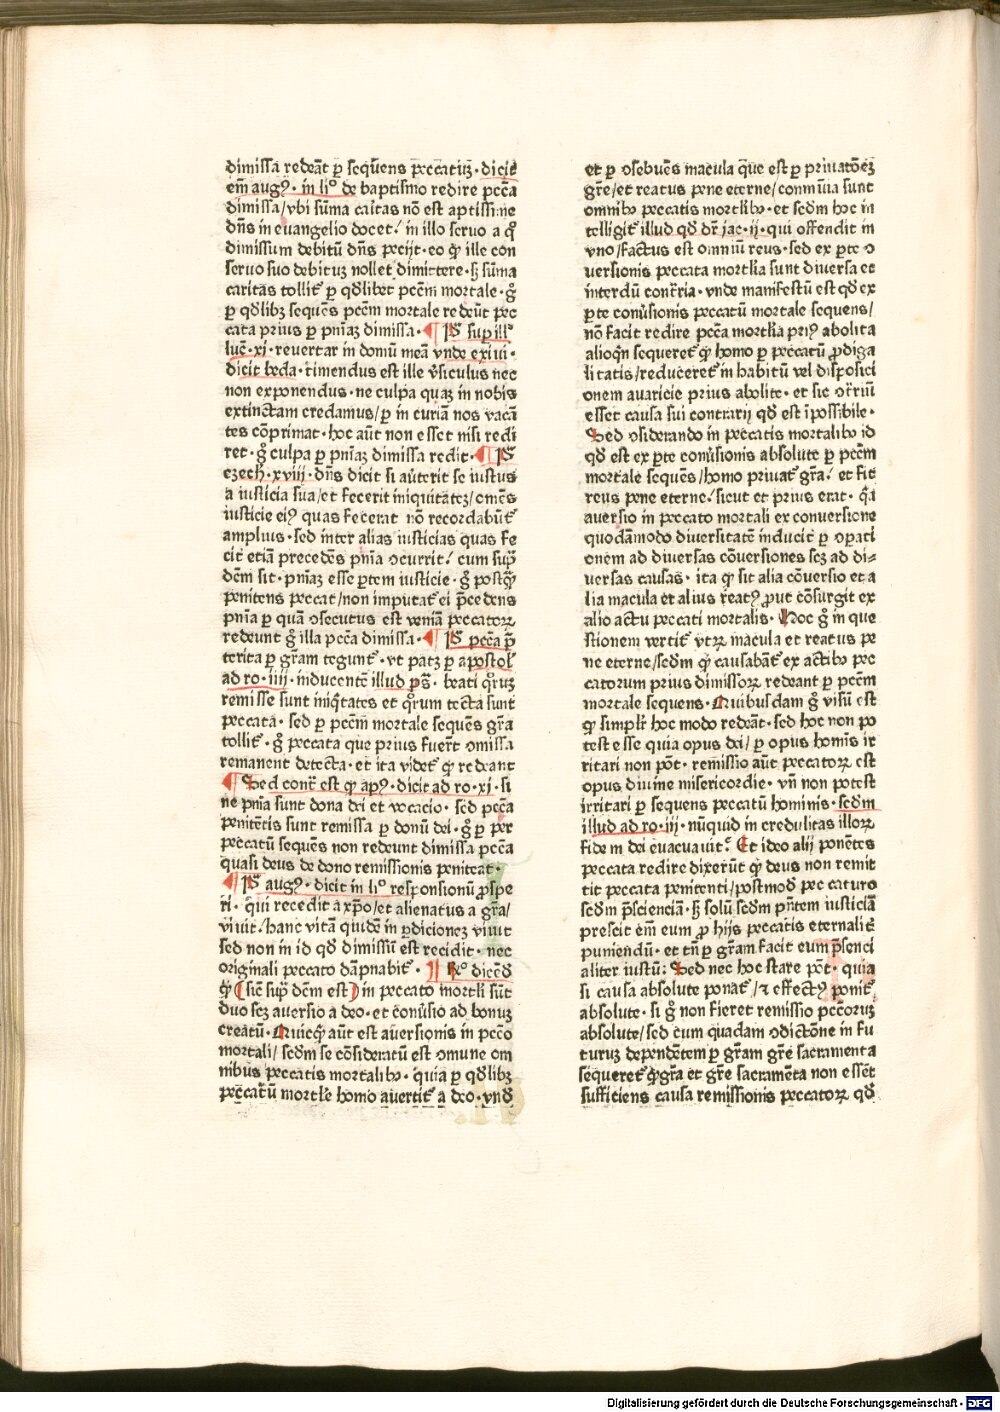 dimissa redeãt ꝑ sequẽns peccatuꝫ · dicit
em̃ augꝰ · in liº de baptismo redire pcc̃a
dimissa/vbi sum̃a caitas nõ est aptissime
dñs in euangelio docet/ in illo seruo a q̃
dimissum debitũ dñs pecijt · eo ꝙ ille con
seruo suo debituꝫ nollet dimittere · sꝫ sum̃a
caritas tollit̃ ꝑ qdlibet pccm̃ mortale · g̊
ꝑ qdlibꝫ sequẽs pccm̃ mortale redeũt pec
cata prius ꝑ pñiaꝫ dimissa · ¶ P̃ suꝑ ill̃
luc̃ · xi · reuertar in domũ meã vnde exiui ·
dicit beda · timendus est ille v̉siculus nec
non exponendus · ne culpa quaꝫ in nobis
extinctam credamus/ꝑ in curiam nos vacã
tes cõprimat · hoc aũt non esset nisi redi
ret · g̊ culpa ꝑ pñiaꝫ dimissa redit · ¶ P̃
ezech̃ · xviij · dñs dicit si au̾terit se iustus
a iusticia sua/et fecerit iniquitatez/omẽs
iusticie eiꝰ quas fecerat nõ recordabũt̃
amplius · sed inter alias iusticias quas fe
cit etiã precedẽs pñia ocurrit/ cum sup̃
dẽm sit · pñiaꝫ esse ꝑtem iusticie · g̊ postq̃
penitens peccat/non imputat̃ ei p̃cedens
pñia ꝑ quã ↄsecutus est veniã peccatoꝝ
redeunt g̊ illa pcc̃a dimissa · ¶ P̃ pcc̃a p̃
terita ꝑ gr̃am tegunt̃ · vt patꝫ ꝑ apostol̃
ad ro · iiij · inducentẽ illud ps̃ · beati qr̃uꝫ
remisse sunt iniq̃tates et qr̃um tecta sunt
peccata · sed ꝑ pccm̃ mortale sequẽs gr̃a
tollit̃ · g̊ peccata que prius fuer̃t ↄmissa
remanent detecta · et ita videt̃ ꝙ redeant
¶ Sed contr̃ est ꝙ apꝰ · dicit ad ro · xi · si
ne pñia sunt dona dei et vocacio · sed pcc̃a
penitẽtis sunt remissa ꝑ donũ dei · g̊ ꝑ ꝑ
peccatũ sequẽs non redeunt dimissa pcc̃a
quasi deus de dono remissionis peniteat ·
¶ P̃ augꝰ · dicit in liº responsionũ ꝓspe
ri · qui recedit a xp̃o/et alienatus a gr̃a/
viuit/ hanc vitã quidẽ in ꝑdicionez viuit
sed non in id qd dimissũ est recidit · nec
originali peccato dãpnabit̃ · ¶ Rº dicẽd
ꝙ (sic̃ sup̃ dẽm est) in peccato mortli sũt
duo scꝫ auersio a deo · et conu̾sio ad bonuꝫ
creatũ · Quicq̃ aũt est auersionis in pcc̃o
mortali/ scdm se cõsideratũ est ↄmune om
nibus peccatis mortalibꝰ · quia ꝑ qdlibꝫ
peccatũ mortle homo auertit̃ a deo · vnd
et ꝑ ↄsequẽs macula que est ꝑ priuatõez
gr̃e/et reatus pene eterne/conmũia sunt
omnibꝰ peccatis mortlibꝰ · et scdm hoc in
telligit̃ illud qd dr̃ jac · ij · qui offendit in
vno/factus est omniũ reus · sed ex ꝑte ↄ
uersionis peccata mortlia sunt diuersa et
interdũ contr̃ria · vnde manifestũ est qd ex
ꝑte conu̾sionis peccatũ mortale sequens/
nõ facit redire pcc̃a mortlia priꝰ abolita
alioqñ sequeret̃ ꝙ homo ꝑ peccatũ ꝓdiga
litatis/reduceret̃ in habitũ vel disposici
onem auaricie prius abolite · et sic ↄtr̃riũ
esset causa sui contrarij qd est ĩpossibile ·
Sed ↄsiderando in peccatis mortalibꝰ id
qd est ex ꝑte conu̾sionis absolute ꝑ pccm̃
mortale sequẽs/homo priuat̃ gr̃a/ et fit
reus pene eterne/ sicut et prius erat · q̃a
auersio in peccato mortali ex conuersione
quodãmodo diuersitatẽ inducit ꝑ oꝑati
onẽm ad diuersas cõuersiones scꝫ ad di-
uersas causas · ita ꝙ sit alia cõuersio et a
lia macula et alius reatꝰ ꝓut cõsurgit ex
alio actu peccati mortalis · Hoc g̊ in que
stionem vertit̃ vtꝝ macula et reatus pe
ne eterne/scdm ꝙ causabãt̃ ex actibꝰ pec
catorum prius dimissoꝝ redeant ꝑ pccm̃
mortale sequens · Quibusdam g̊ visũ est
ꝙ simplr̃ hoc modo redeãt · sed hoc non po
test esse quia opus dei/ ꝑ opus homĩs ir
ritari non põt · remissio aũt peccatoꝝ est
opus diuine misericordie · vñ non potest
irritari ꝑ sequens peccatũ hominis · scdm
illud ad ro · iij · nũquid in credulitas illoꝝ
fidem dei euacuauit/ Et ideo alij ponẽtes
peccata redire dixerũt ꝙ deus non remit
tit peccata penitenti/postmod peccaturo
scdm p̃scienciã · sꝫ solũ scdm pñtem iusticiã
prescit em̃ eum ꝓ hijs peccatis eternalit̃
puniendũ · et tñ ꝑ gr̃am facit eum p̃senci
aliter iustũ: Sed nec hoc stare põt · quia
si causa absolute ponat̃ /⁊ effectꝰ ponit̃
absolute · si g̊ non fieret remissio pcc̃oruꝫ
absolute/sed cum quadam ↄdictõne in fu
turuꝫ dependẽtem ꝑ gr̃am gr̃e sacramenta
sequeret̃ ꝙ gr̃a et gr̃e sacramẽta non essẽt
sufficiens causa remissionis peccatoꝝ qd
Digitalisierung gefördert durch die Deutsche Forschungsgemeinschaft · DFG